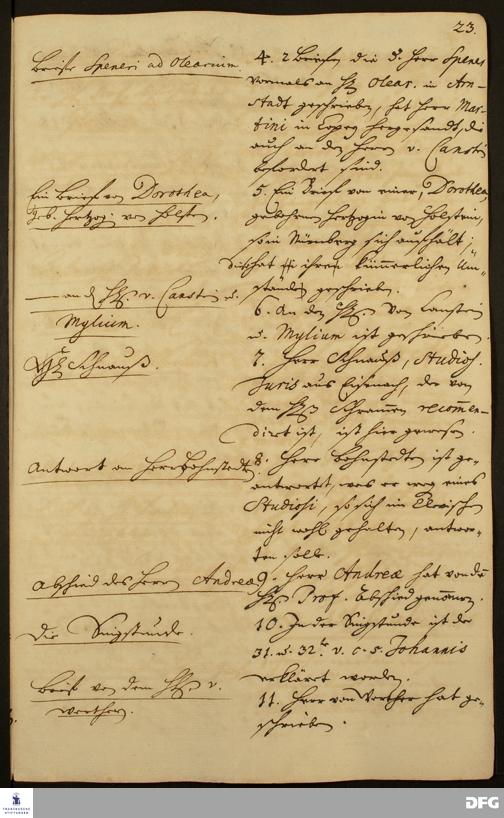 23.
Briefe Speneri ad Olearium.
4. 2 Briefe die d. Herr Spener
vormals an H. Olear. in Arn-
stadt geschrieben, hat Herr Mar-
tini in Copey hergesandt, die
auch an den Herrn v. Canstein
befördert sind.
Ein Brief von Dorothea,
geb. Hertzogin von Holstein.
5. Ein Brief von einer, Dorothea,
gebohrnen Hertzogin von Holstein,
so in Nürnberg sich aufhält;
die hat ihren kümmerlichen Um-
stände geschrieben.
— an d. H. v. Canstein u.
Mylium.
6. An den H. von Canstein
u. Mylium ist geschrieben.
H. Schnauß.
7. Herr Schnauß, Studios.
Juris aus Eisenach, der von
dem H. Schramen recommen-
dirt ist, ist hier gewesen.
Antwort an Herrn Bohnstedt.
8. Herr Bohnstedten ist ge-
antwortet, was er weg. eines
Studiosi, so sich im Clevischen
nicht wohl gehalten, antwor-
ten solle.
Abschied des Herrn Andreä
9. Herr Andreä hat von dem
H. Prof. Abschied genommen.
Die Singstunde.
10. In der Singstunde ist der
31. u. 32te v. c. 5. Johannis
erkläret worden.
Brief von dem H. v.
Werthern.
11. Herr von Werther hat ge-
schrieben.
FRANCKESCHE STIFTUNGEN
DFG